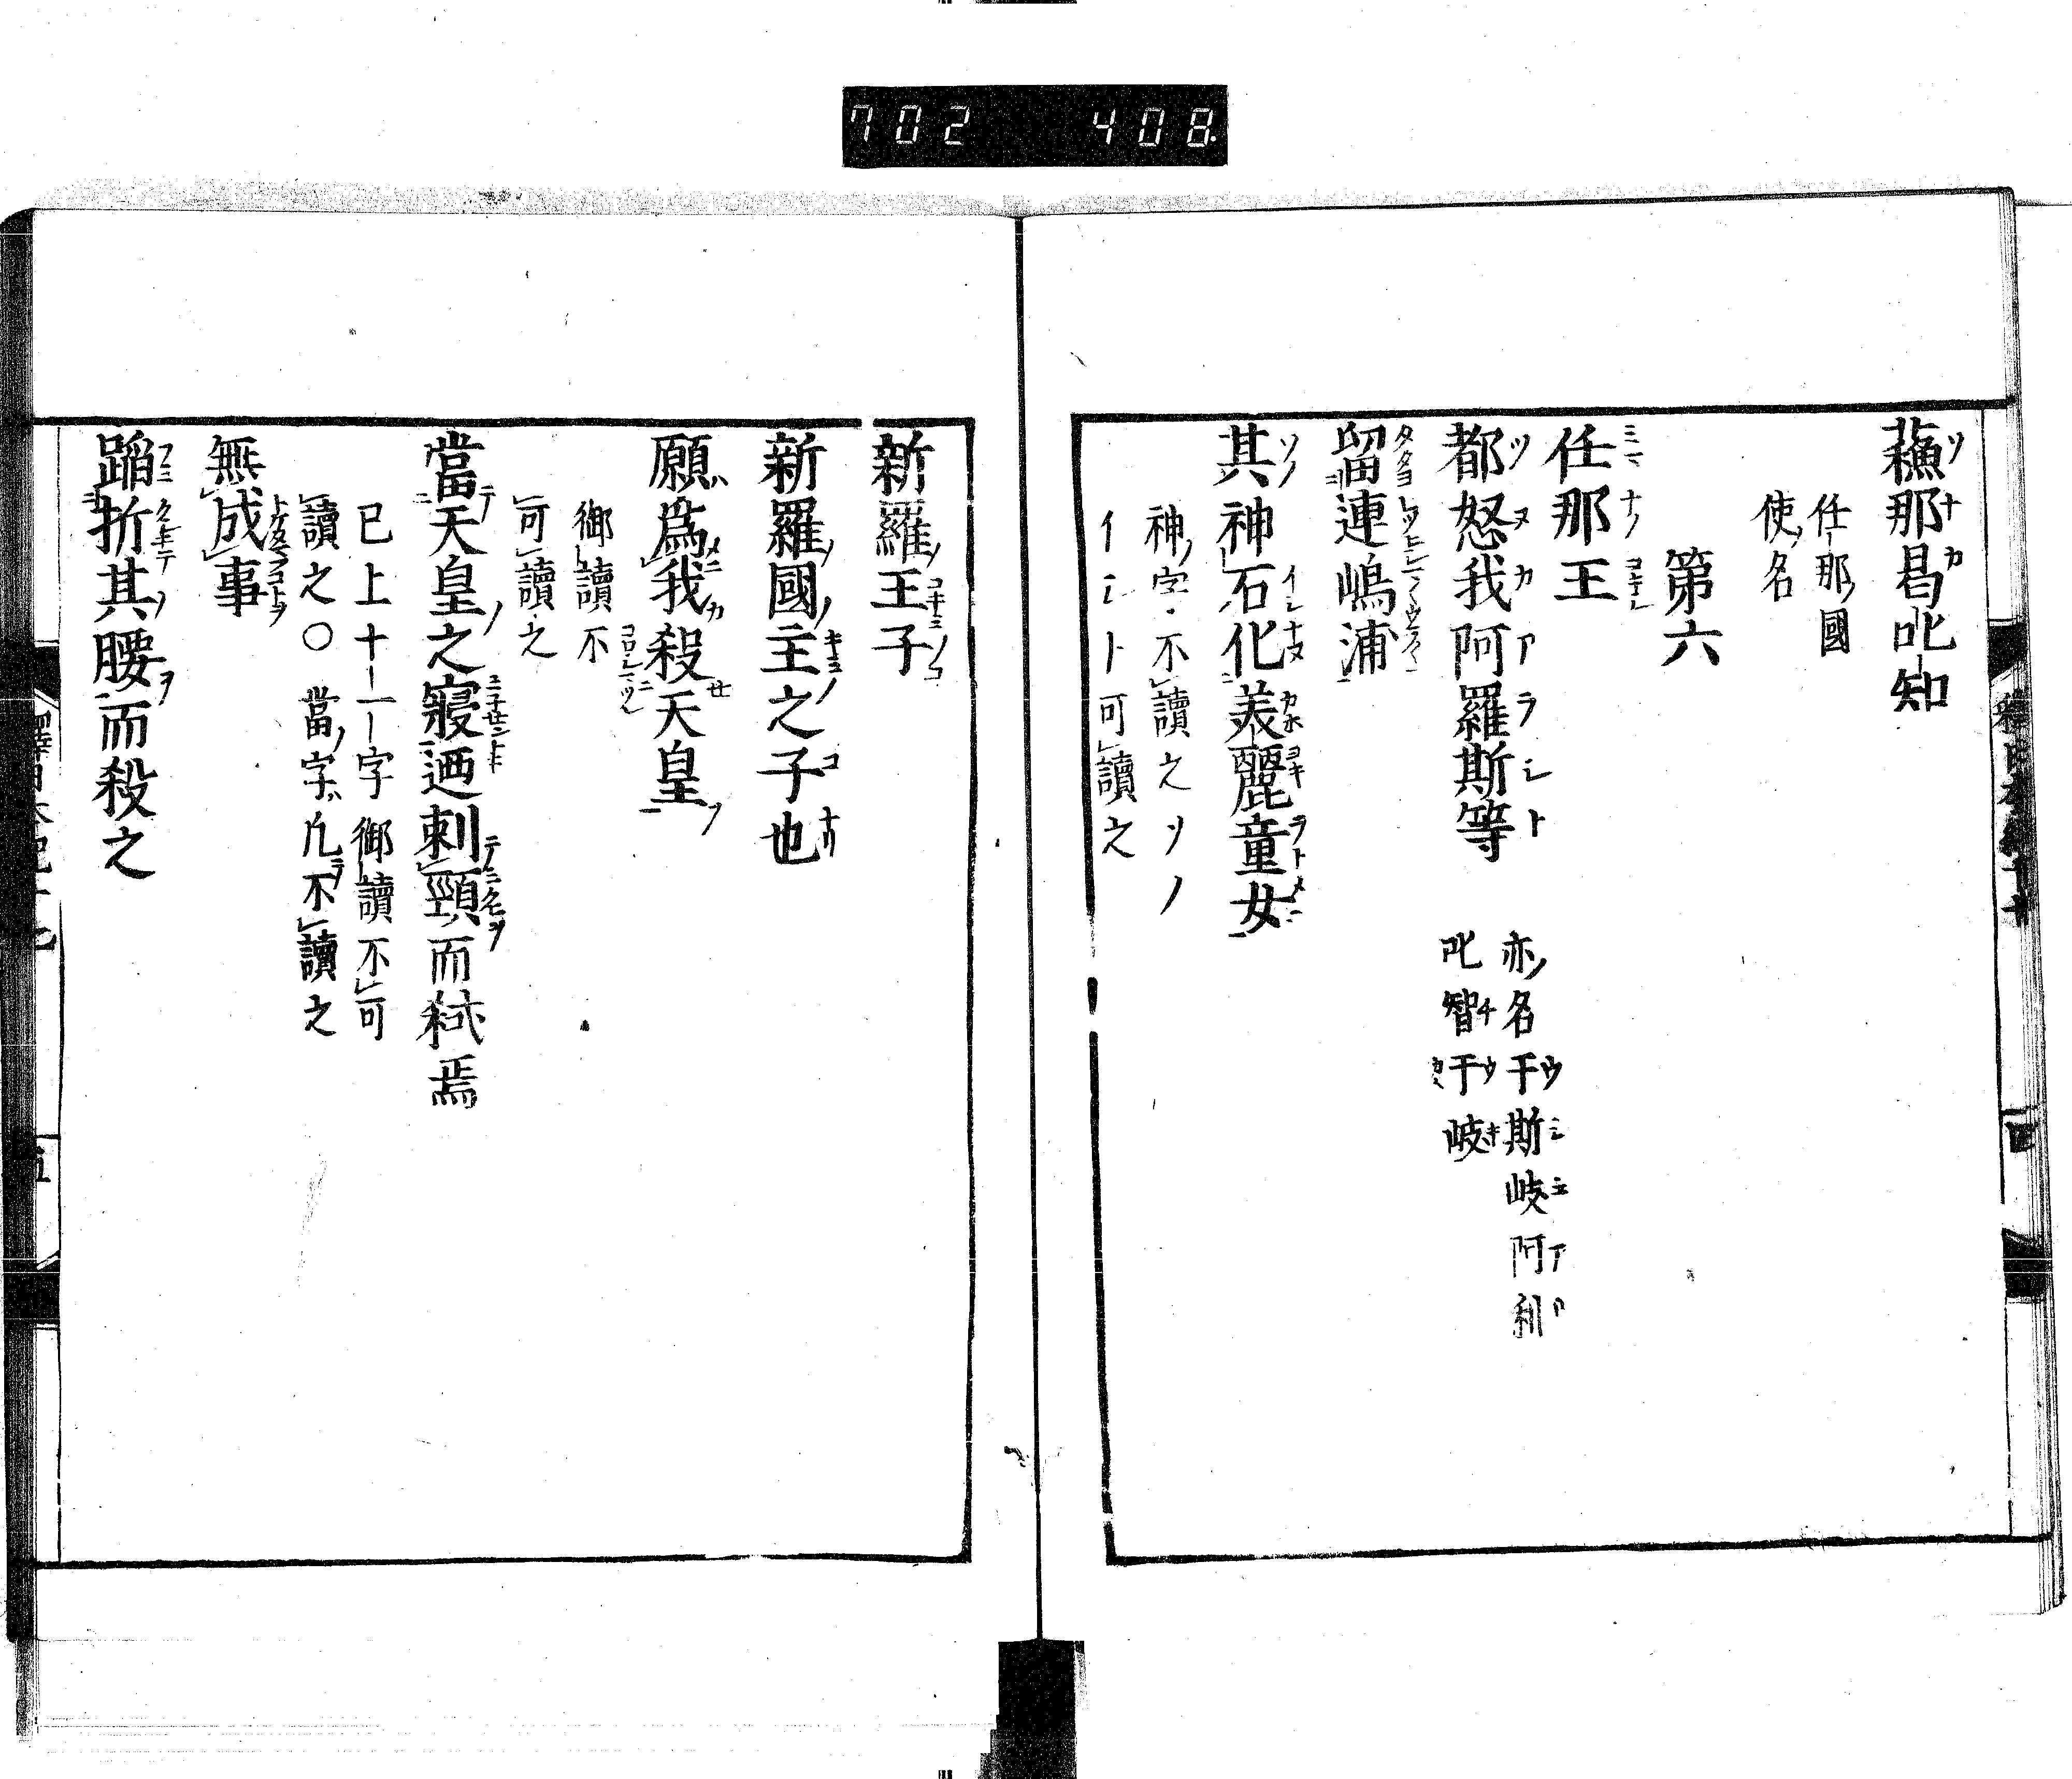 702 408
蘓那曷叱知
任那國
使名
第六
任那王
都怒我阿羅斯等
亦名于斯岐阿利
叱智于岐
留連嶋浦
其神石化美麗童女
神字不讀之ソノ
イシト可讀之
新羅王子
新羅國主之子也
願爲我殺天皇
御讀不
可讀之
當天皇之寢廼刺頸而弑焉
已上十一字御讀不可
讀之〇當字凡不讀之
無成事
蹈折其腰而殺之